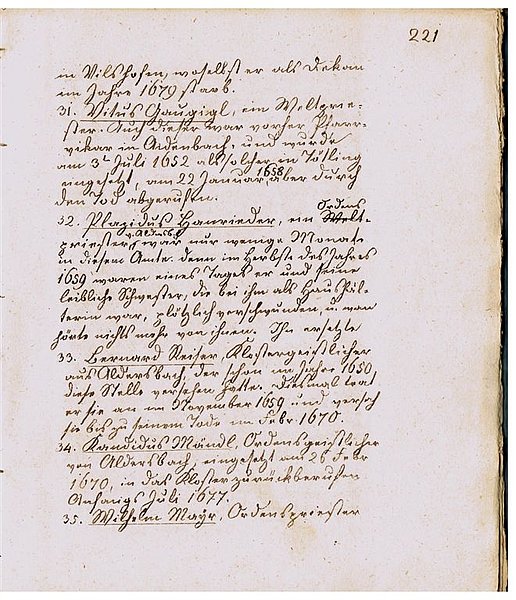 221
in Vilshofen, woselbst er als Dekan
im Jahre 1679 starb.
31. Vitus Gaugigl, ein Weltprie-
ster. Auch dieser war vorher Pfarr-
vikar in Aidenbach, und wurde
am 3t Juli 1652 als solcher in Tötling
eingesetzt, am 22 Januar 1658 aber durch
den Tod abgerufen.
32. Plazidus Hanrieder, ein Ordens
priester v. Aldersb. war nur wenige Monate
in diesem Amte. denn im Herbste des Jahres
1659 waren eines Tages er und seine
leibliche Schwester, die bei ihm als Haushäl-
terin war, plötzlich verschwunden u. man
hörte nichts mehr von ihnen. Ihn ersetzte
33. Bernard Reiser, Klostergeistlicher
aus Aldersbach, der schon im Jahre 1650,
diese Stelle versehen hatte. Diesmal trat
er sie an im November 1659 und versah
sie bis zu seinem Tode im Febr. 1670.
34. Kandidus Mändl, Ordensgeistlicher
von Aldersbach, eingesetzt am 26 Febr
1670, in das Kloster zurückberufen
Anfangs Juli 1677.
35. Wilhelm Mayr, Ordenspriester